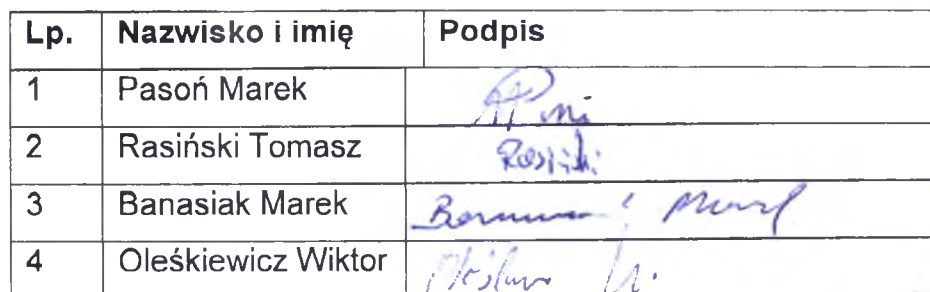 Lp. Nazwisko i imię Podpis
1 Pasoń Marek
2 Rasiński Tomasz Rasiński
3 Banasiak Marek
4 Oleśkiewicz Wiktor